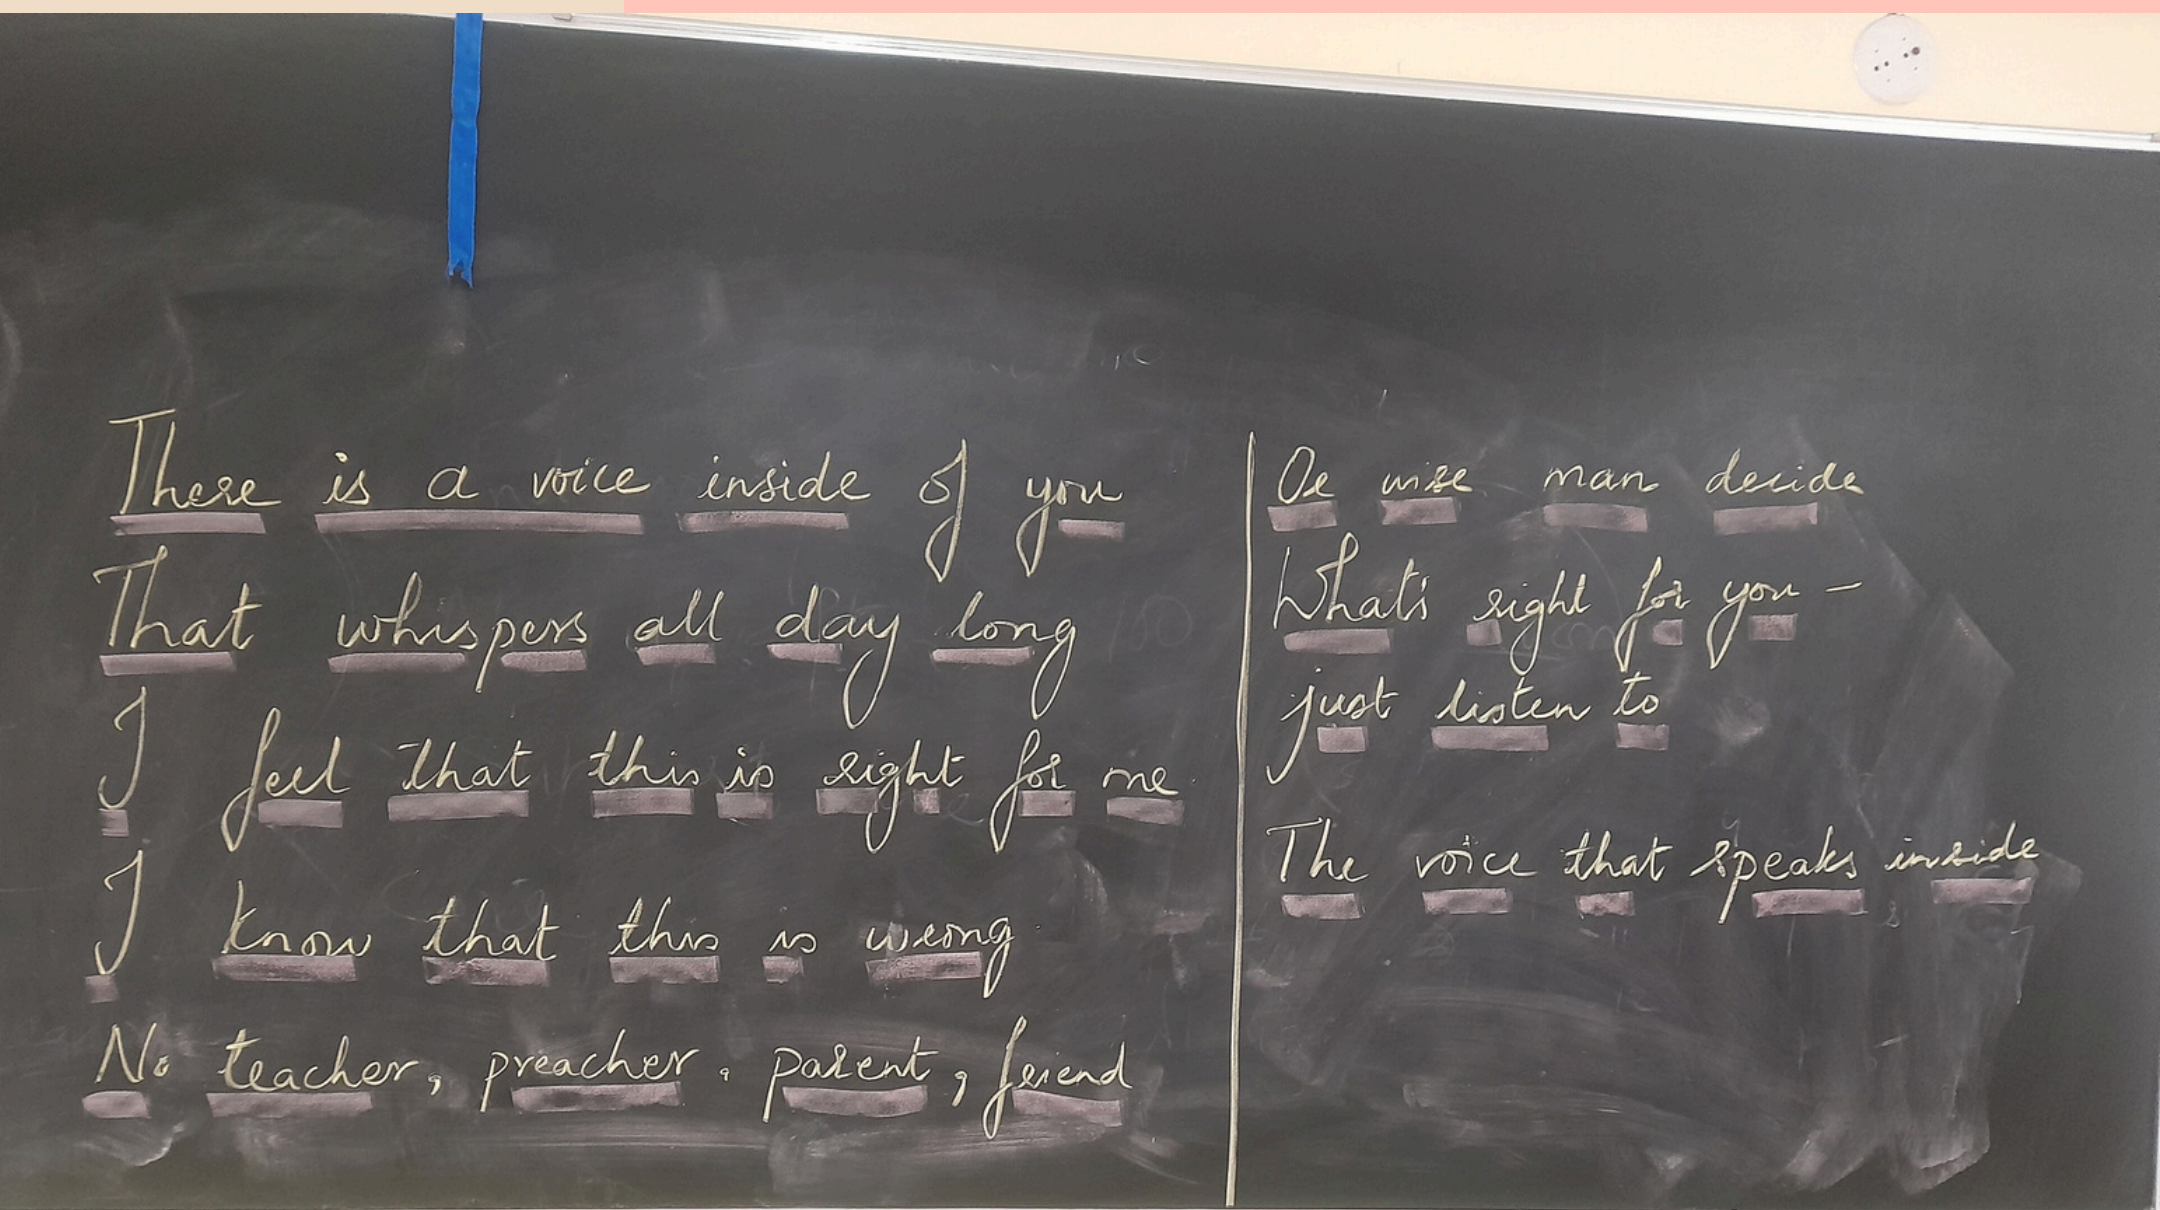 There is a voice inside of you
That whispers all day long
I feel that this is right for me
I know that this is wrong
No teacher, preacher, parent, friend
Or wise man decide
What's right for you –
just listen to
The voice that speaks inside